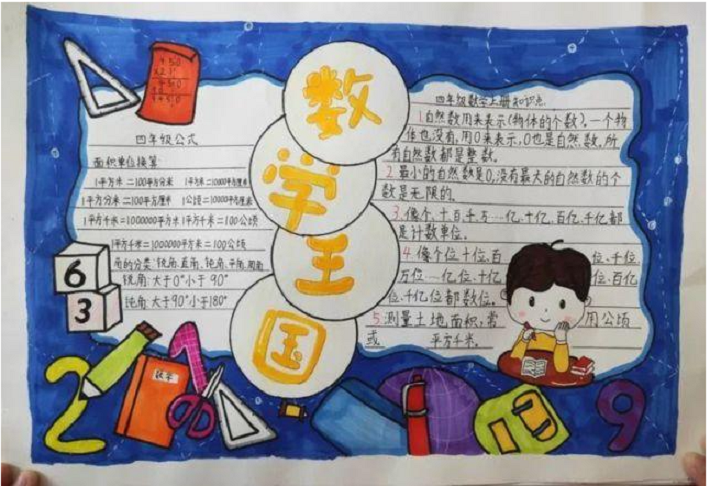 数
学
王
国
450
四年级公式
面积单位换算
1平方米=100平方分米 1平方米=10000平方厘米
1平方分米=100平方厘米 1公顷=10000平方米
1平方千米=1000000平方米 1平方千米=100公顷
1平方千米=1000000平方米=100公顷
角的分类:锐角,直角,钝角,平角,周角
锐角:大于0°小于90°
钝角:大于90°小于180°
四年级数学上册知识点
1.自然数用来表示(物体的个数),一个物
体也没有,用0来表示,0也是自然数,所
有自然数都是整数。
2.最小的自然数是0,没有最大的自然数的个
数是无限的。
3.像个,十,百,千,万…亿,十亿,百亿,千亿都
是计数单位。
4.像个位十位,百位,千位,
万位…亿位,十亿位,百亿
位,千亿位都数位。
5.测量土地面积,常用公顷
或平方千米。
6
3
2
1
数学
9